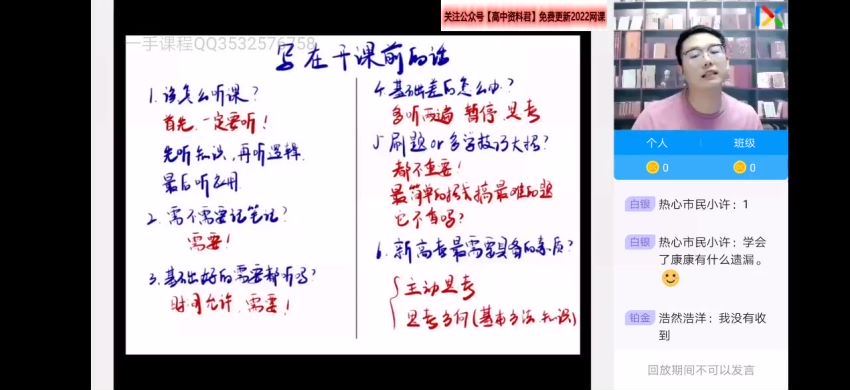 关注公众号【高中资料君】免费更新2022网课
一手课程QQ3532576758
写在干课前的话
1. 该怎么听课？
首先, 一定要听！
先听知识，再听逻辑，
最后听应用
2. 需不需要记笔记？
需要！
3. 基础好的需要都听吗？
时间允许，需要！
4. 基础差的怎么办？
多听两遍 暂停 思考
5 刷题 or 多学技巧大招？
都不重要！
最简单的招式搞最难的题
它不香吗？
6. 新高考最需要具备的素质？
主动思考
思考方向(基本方法 知识)
个人 班级
0 0
白银 热心市民小许：1
白银 热心市民小许：学会
了康康有什么遗漏。
铂金 浩然浩洋：我没有收
到
回放期间不可以发言